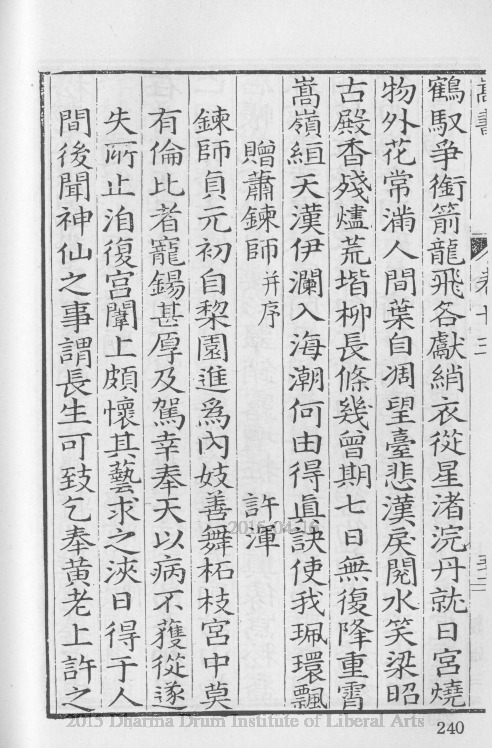 嵩書
卷十三
鶴馭爭銜箭龍飛各獻綃衣從星渚浣丹就日宮燒
物外花常滿人間葉自凋望臺悲漢戾閱水笑梁昭
古殿香殘燼荒堦柳長條幾曾期七日無復降重霄
嵩嶺絙天漢伊瀾入海潮何由得眞訣使我珮環飄
贈蕭鍊師并序
許渾
鍊師貞元初自梨園進爲內妓善舞柘枝宮中莫
有倫比者寵錫甚厚及駕幸奉天以病不獲從遂
失所止洎復宮闈上頗懷其藝求之浹日得于人
間後聞神仙之事謂長生可致乞奉黃老上許之
2015-04-16
2015 Dharma Drum Institute of Liberal Arts
240